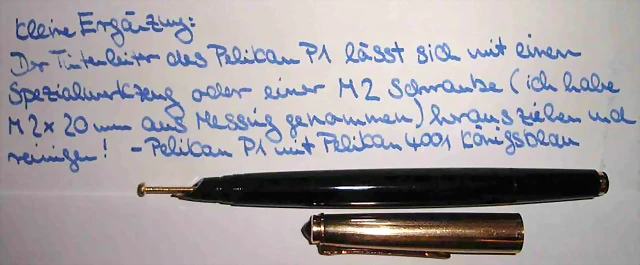 kleine Ergänzung:
Der Tintenleiter des Pelikan P1 lässt sich mit einem
Spezialwerkzeug oder einer M2 Schraube (ich habe
M2x20mm aus Messing genommen) heraus ziehen und
reinigen! - Pelikan P1 mit Pelikan 4001 Königsblau